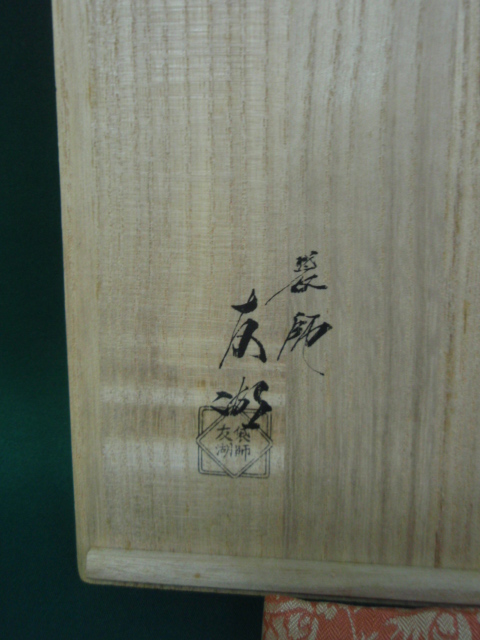 袋師
友湖
袋師
友湖